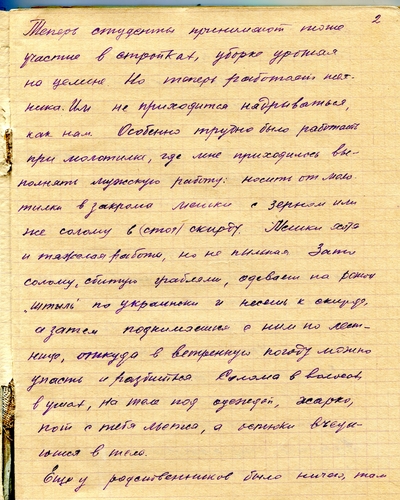 2
Теперь студенты принимают тоже
участие в стройках, уборке урожая
на целине Но теперь работает тех-
ника. Им не приходится надрываться,
как нам Особенно трудно было работать
при молотилке, где мне приходилось вы-
полнять мужскую работу: носить от моло-
тилки в закрома мешки с зерном или
же солому в (стог) скирду. Мешки хотя
и тяжолая работа, но не пыльная Зато
солому, сбитую граблями, одеваем на
"штыль" по украински и несешь к скирде,
а затем поднимаешся с ним по лест-
нице, откуда в ветренную погоду можно
упасть и разбиться Солома в волосах,
в ушах, на теле под одеждой, жарко,
пот с тебя льется, а остюки впеди-
ются в тело.
Еще у родственников было ничего, там